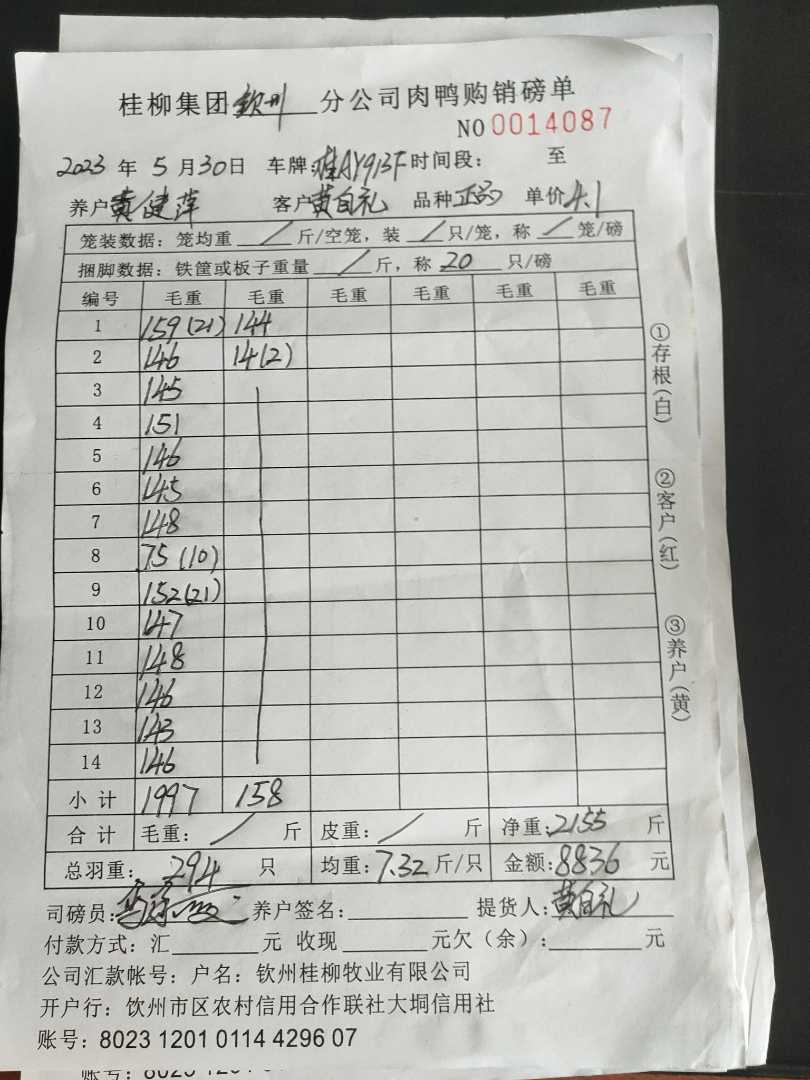 桂柳集团钦州分公司肉鸭购销磅单
NO 0014087
2023年5月30日 车牌:桂AY913F 时间段: 至
养户黄健萍 客户黄自礼 品种正品 单价4.1
笼装数据: 笼均重 / 斤/空笼, 装 / 只/笼, 称 / 笼/磅
捆脚数据: 铁筐或板子重量 / 斤, 称 20 只/磅
编号 毛重 毛重 毛重 毛重 毛重 毛重
1 159(21) 144
2 146 14(2)
3 145
4 151
5 146
6 145
7 148
8 75(10)
9 152(21)
10 147
11 148
12 146
13 143
14 146
小计 1997 158
合计 毛重: / 斤 皮重: / 斤 净重:2155 斤
总羽重: 294 只 均重:7.32斤/只 金额:8836 元
司磅员: 养户签名: 提货人:黄自礼
付款方式: 汇 元 收现 元欠(余): 元
公司汇款帐号: 户名: 钦州桂柳牧业有限公司
开户行: 钦州市区农村信用合作联社大垌信用社
账号: 8023 1201 0114 4296 07
①存根(白)
②客户(红)
③养户(黄)